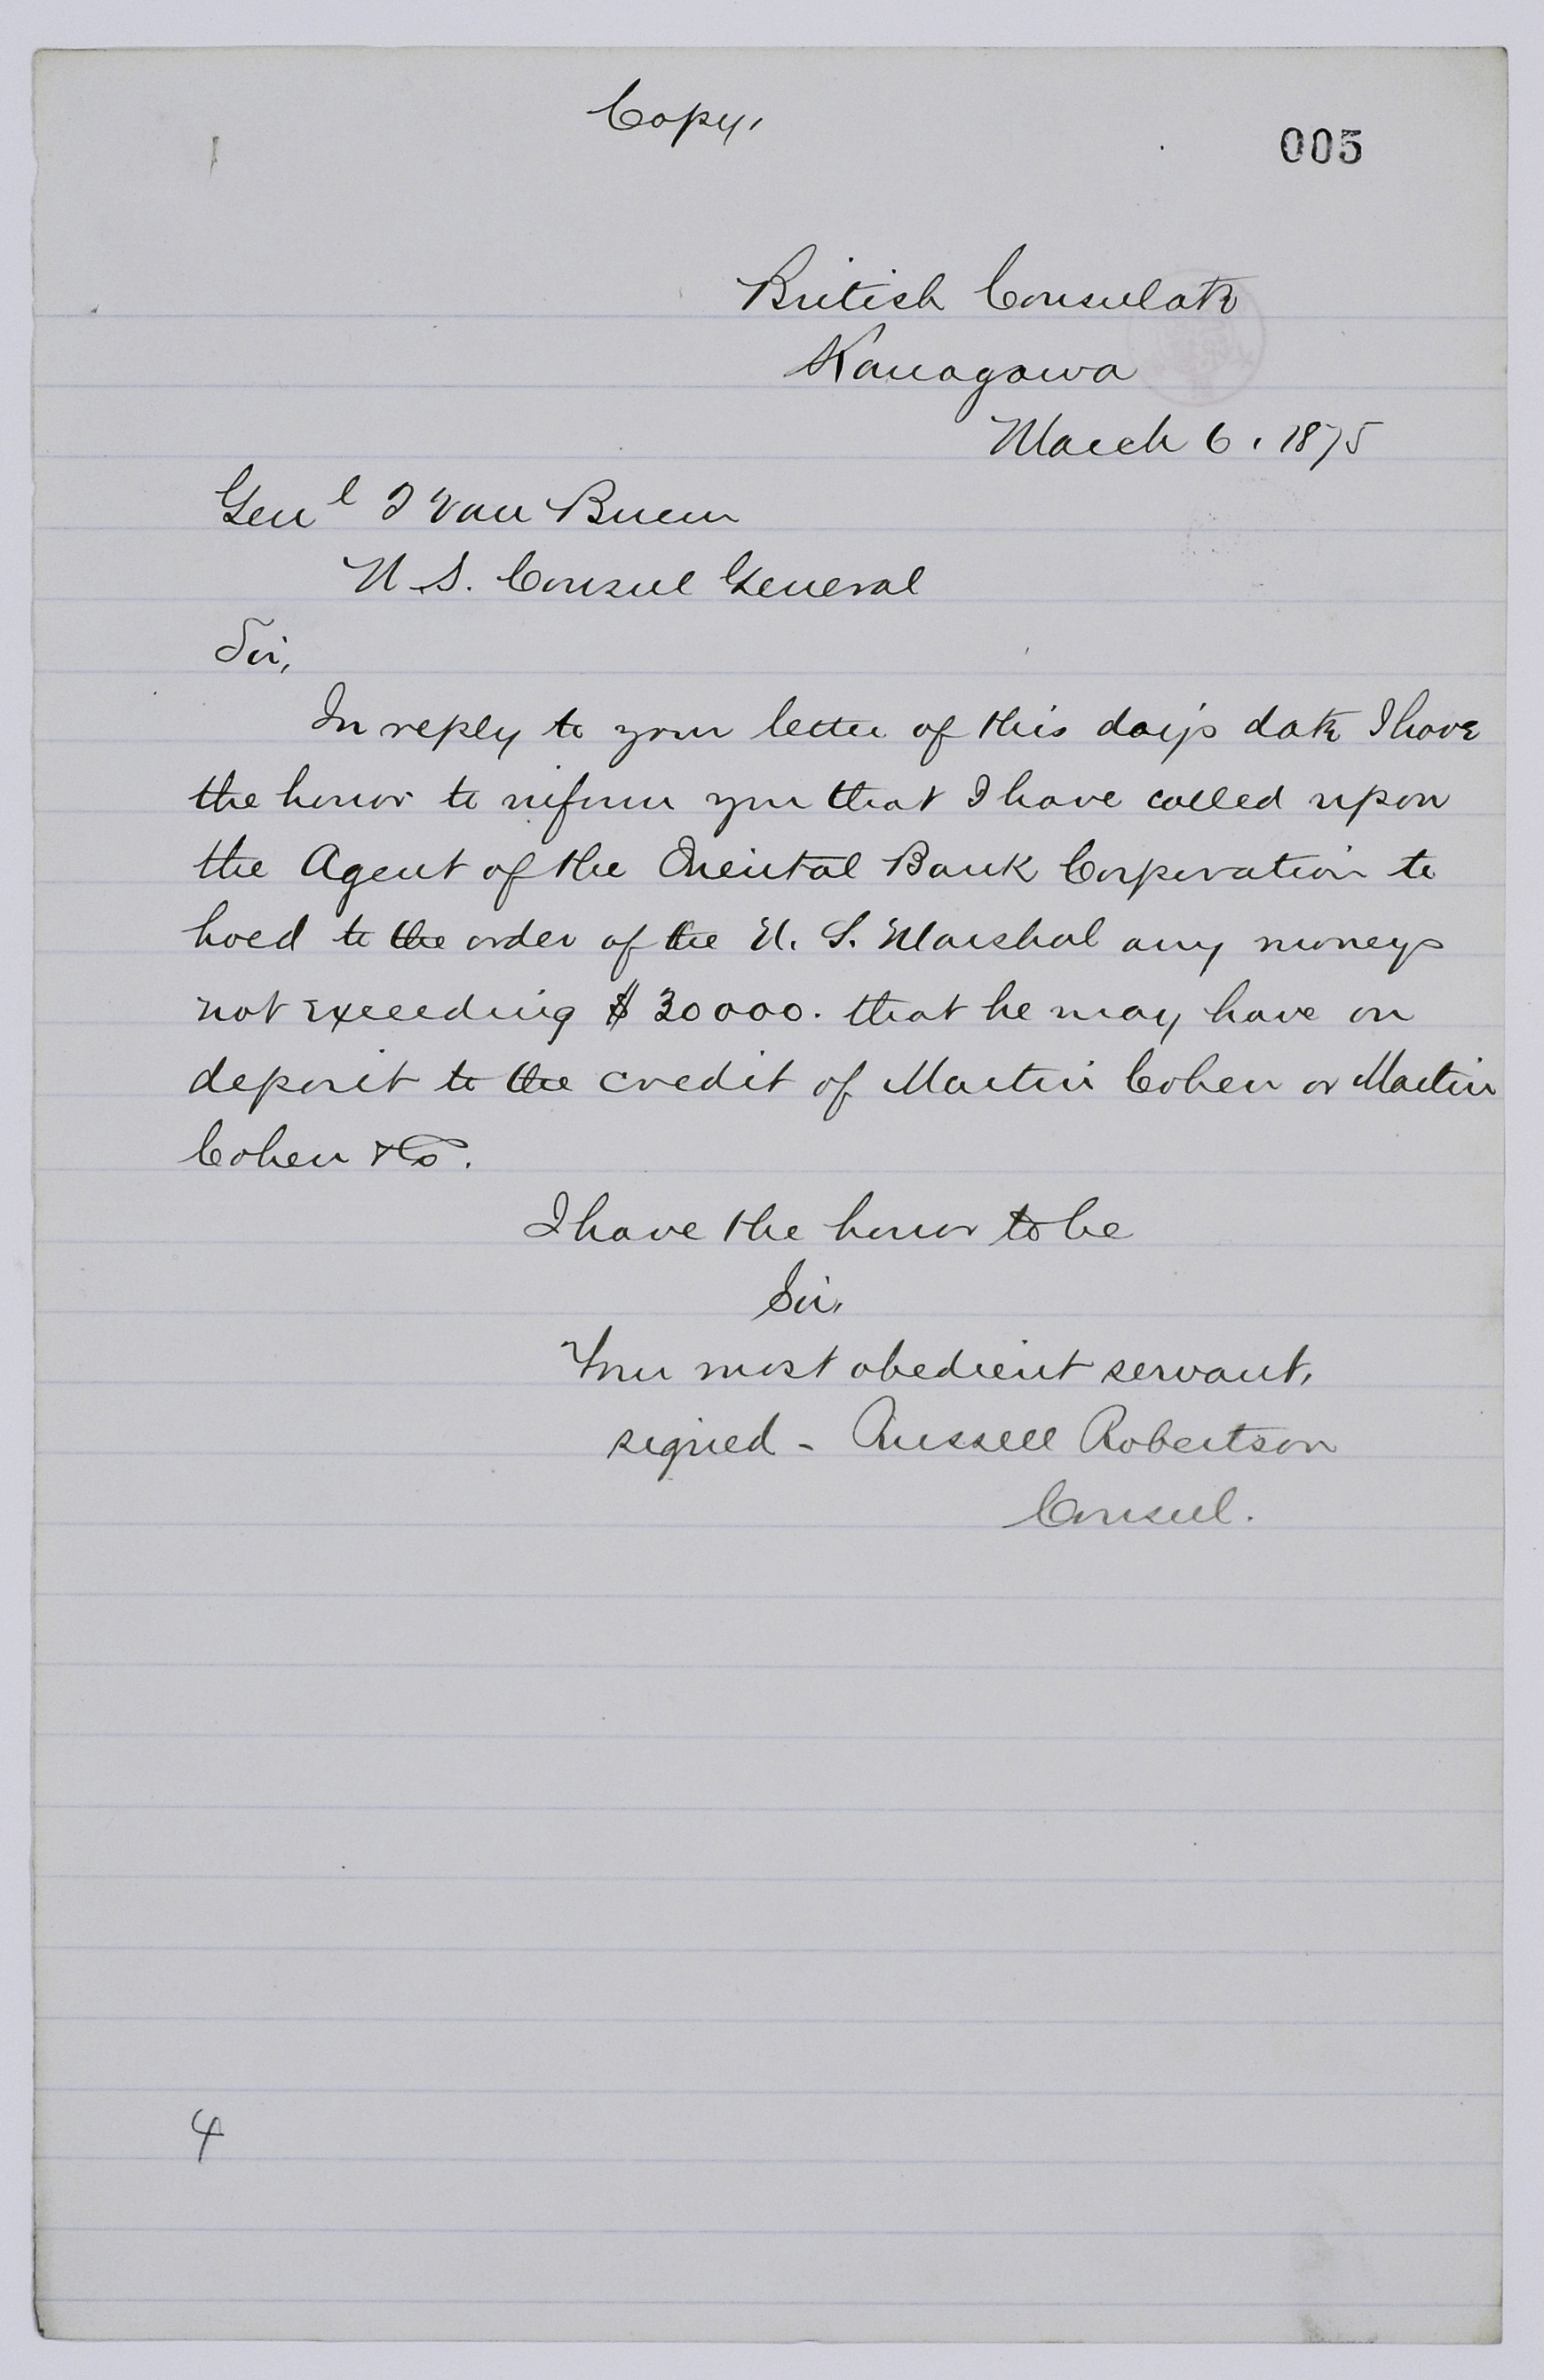 Copy,
005
British Consulate
Kanagawa
March 6, 1875
Genl T Van Buren
U. S. Consul General
Sir,
In reply to your letter of this day's date I have
the honor to inform you that I have called upon
the Agent of the Oriental Bank Corporation to
hold to the order of the U. S. Marshal any moneys
not exceeding $ 30000. that he may have on
deposit to the credit of Martin Cohen or Martin
Cohen & Co.
I have the honor to be
Sir,
Your most obedient servant,
signed - Russell Robertson
Consul.
4